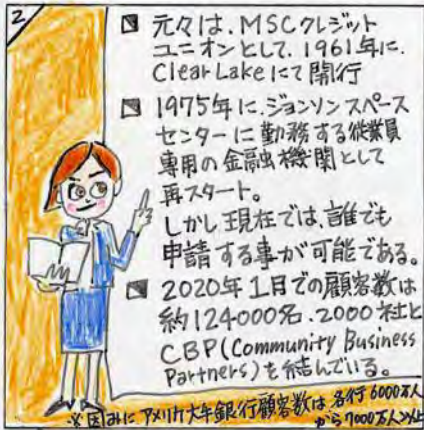 2
元々は、MSCクレジット
ユニオンとして、1961年に、
Clear Lakeにて開行
1975年に、ジョンソンスペース
センターに勤務する従業員
専用の金融機関として
再スタート。
しかし現在では、誰でも
申請する事が可能である。
2020年1月での顧客数は
約124000名、2000社と
CBP(Community Business
Partners)を結んでいる。
※因みにアメリカ大手銀行顧客数は各行6000万人
から7000万人以上